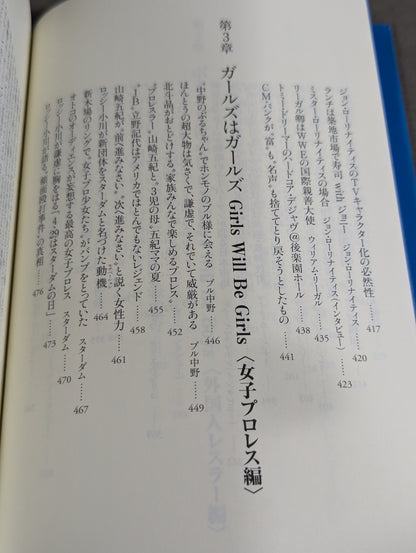 ジョン・ローリナイティスのTVキャラクター化の必然性……417
ランチは築地市場で寿司 with ジョニー ジョン・ローリナイティス……420
ミスター・ローリナイティスの場合 ジョン・ローリナイティス〈インタビュー〉……423
リーガル卿はWWEの国際親善大使 ウィリアム・リーガル……435
トミー・ドリーマーのハードコア・デジャヴ@後楽園ホール……438
CMパンクが“富”も“名声”も捨ててとり戻そうとしたもの……441
第3章 ガールズはガールズ Girls Will Be Girls〈女子プロレス編〉
“中野のぶるちゃん”でホンモノのブル様に会える ブル中野……446
ほんとうの超大物は気さくで、謙虚で、それでいて威厳がある ブル中野……449
北斗晶がおとどけする“家族みんなで楽しめるプロレス”……452
“プロレスラー”山崎五紀と“3児の母”五紀ママの夏……455
“JB”立野記代はアメリカではとんでもないレジェンド……458
山崎五紀が“前へ進みなさい”“次へ進みなさい”と説く女性力……461
ロッシー小川が新団体をスターダムと名づけた動機……464
新木場のリングで“女子プロ少女たち”がバンプをとっていた スターダム……467
オトコのオーディエンスが妄想する最高の女子プロレス スターダム……470
ロッシー小川が謙虚に胸をはる「4・29はスターダムの日」……473
ロッシー小川が語る“顔面殴打事件”の真相……476